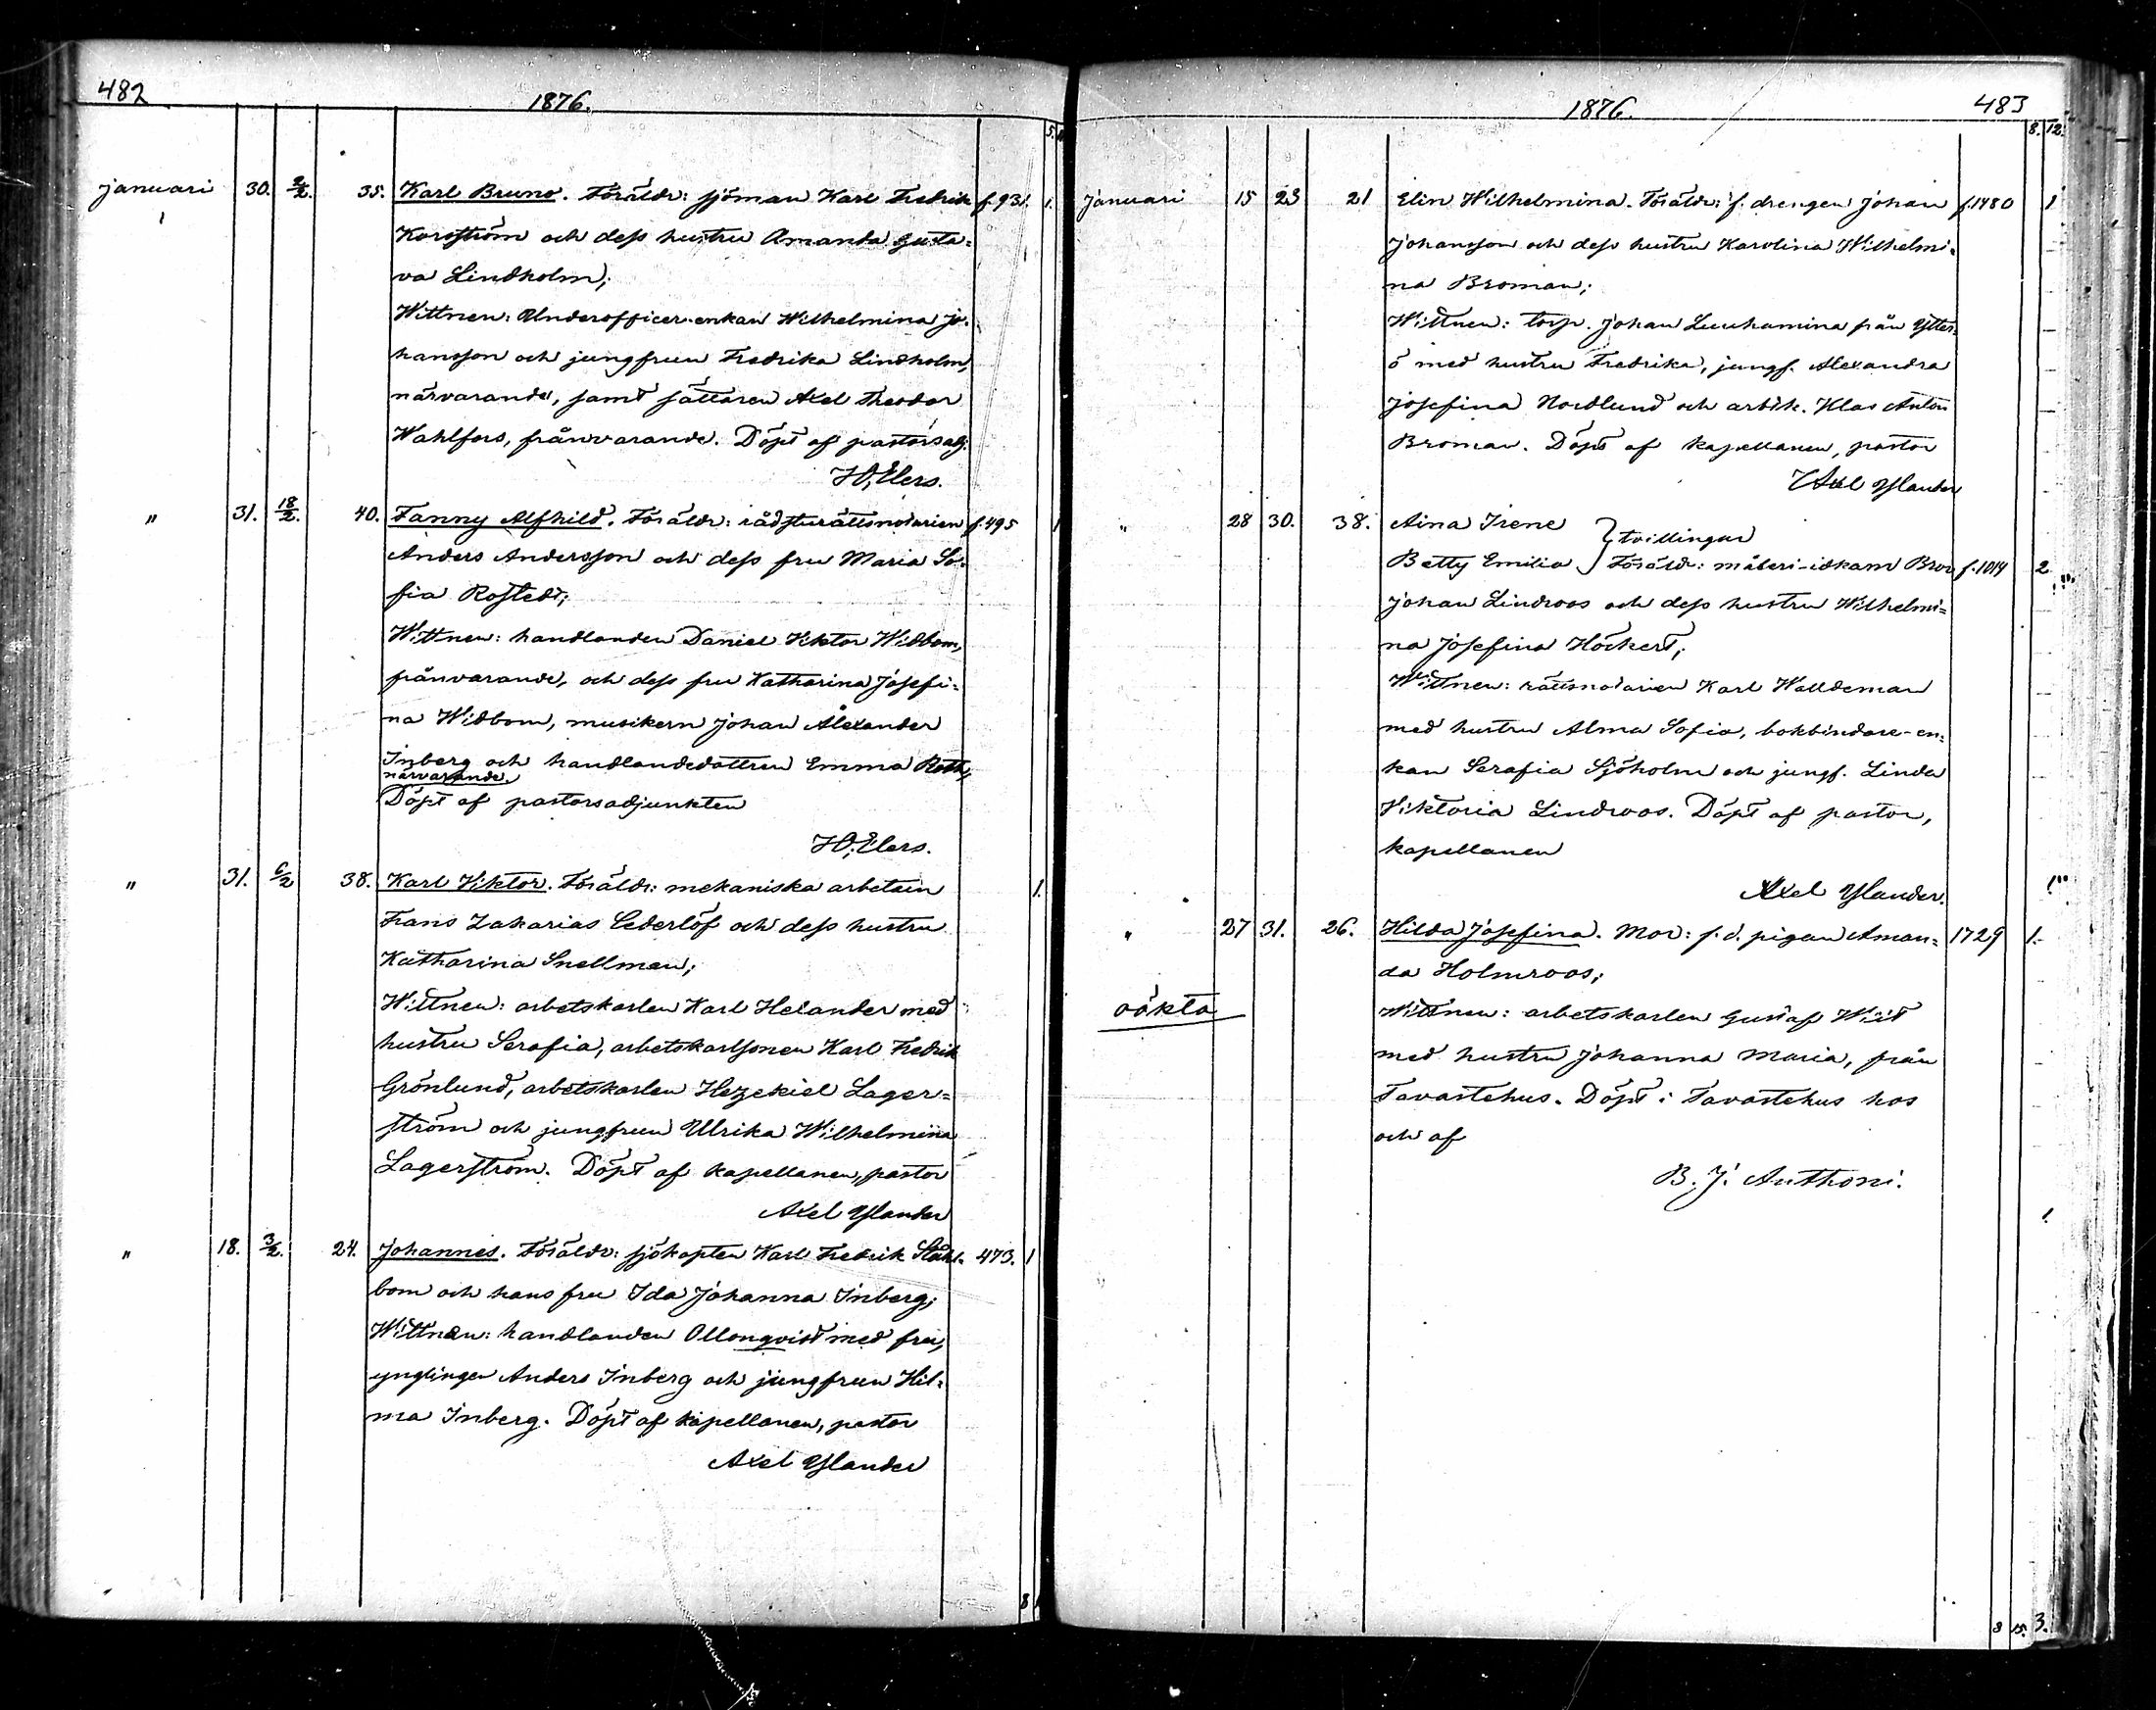 482
1876.
5.
januari 30. 2/2. 35. Karl Bruno. Föräldr: sjöman Karl Fredrik f. 931. 1.
Korsström och dess hustru Amanda Gusta=
va Lindholm;
Wittnen: Underofficer-enkan Wilhelmina Jo-
hansson och jungfrun Fredrika Lindholm,
närvarande, samt sättaren Axel Theodor
Wahlfors, frånvarande. Döpt af pastorsadj.
Elers.
" 31. 18/2. 40. Fanny Alfhild. Föräldr: rådsturättsnotarien f. 495 1
Anders Andersson och dess fru Maria So-
fia Rostedt;
Wittnen: handlanden Daniel Viktor Widbom,
frånvarande, och dess fru Katharina Josefi=
na Widbom, musikern Johan Alexander
Inberg och handlandedottren Emma Roth,
närvarande.
Döpt af pastorsadjunkten
Elers.
" 31. 6/2 38. Karl Viktor. Föräldr: mekaniska arbetarn 1.
Frans Zakarias Cederlöf och dess hustru
Katharina Snellman;
Wittnen: arbetskarlen Karl Helander med
hustru Serafia, arbetskarlssonen Karl Fredrik
Grönlund, arbetskarlen Hezekiel Lager=
ström och jungfrun Ulrika Wilhelmina
Lagerström. Döpt af kapellanen, pastor
Axel Ylander
" 18. 3/2. 24. Johannes. Föräldr: sjökapten Karl Fredrik Ståhl- 473. 1
bom och hans fru Ida Johanna Inberg;
Wittnen: handlanden Ollonqvist med fru,
ynglingen Anders Inberg och jungfrun Hil=
ma Inberg. Döpt af kapellanen, pastor
Axel Ylander
8
1876.
483
8. 12.
Januari 15 23 21 Elin Wilhelmina. Föräldr: f. drengen Johan f. 1480 1
Johansson och dess hustru Karolina Wilhelmi-
na Broman;
Wittnen: torp. Johan Luuhamina från Ytter-
ö med hustru Fredrika, jungf. Alexandra
Josefina Nordlund och arb.k. Klas Anton
Broman. Döpt af kapellanen, pastor
Axel Ylander
" 28 30. 38. Aina Irene } tvillingar
Betty Emilia } Föräldr: måleri-idkaren Bror f. 1014 2
Johan Lindroos och dess hustru Wilhelmi=
na Josefina Höckert;
Wittnen: rättsnotarien Karl Walldeman
med hustru Alma Sofia, bokbindare-en=
kan Serafia Sjöholm och jungf. Linda
Viktoria Lindroos. Döpt af pastor,
kapellanen
Axel Ylander.
" 27 31. 26. Hilda Josefina. Mor: f.d. pigan Aman= 1729 1.
da Holmroos;
oäkta
Wittnen: arbetskarlen Gustaf
med hustru Johanna Maria, från
Tavastehus. Döpt i Tavastehus hos
och af
B. J. Anthoni.
1.
8 15. 3.